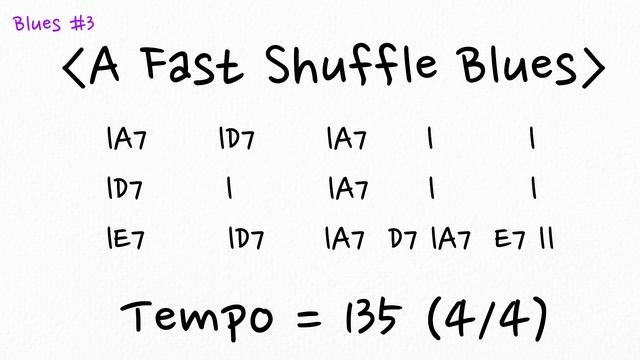 Blues #3
<A Fast Shuffle Blues>
|A7 |D7 |A7 | |
|D7 | |A7 | |
|E7 |D7 |A7 D7 |A7 E7 ||
Tempo = 135 (4/4)